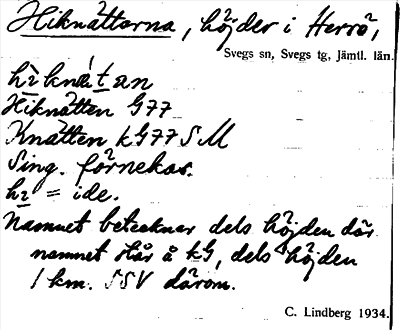 Hiknättarna, höjder i Herrö,
Svegs sn, Svegs tg, Jämtl. län.
Hiknätten G77
Knätten kG77 SM
Sing. förnekas.
hi = ide.
Namnet betecknar dels höjden där
namnet står å kG, dels höjden
1 km. SSV därom.
C. Lindberg 1934.